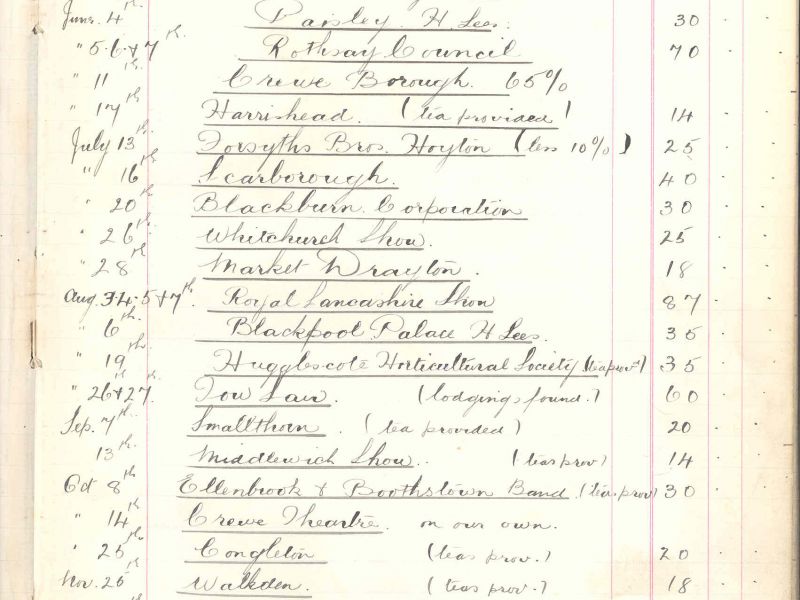 June. 4th. Paisley. H. Lees. 30
" 5.6.+7th. Rothsay Council 70
" 11th Crewe Borough. 65%
" 17th Harrishead. (tea provided) 14
July 13th. Forsyths Bros. Hoyton (less 10%) 25
" 16th Scarborough. 40
" 20th Blackburn Corporation 30
" 26th Whitchurch Show. 25
" 28th Market Drayton. 18
Aug. 3.4.5+7th. Royal Lancashire Show 87
" 6th. Blackpool Palace H Lees. 35
" 19th. Hugglescote Horticultural Society. (tea provd) 35
" 26th+27th. Tow Law. (lodgings found.) 60
Sep. 7th. Smallthorn. (tea provided) 20
13th. Middlewich Show. (teas prov) 14
Oct 8th Ellenbrook + Boothstown Band. (teas prov) 30
" 14th Crewe Theartre. on our own.
" 25th Congleton (teas prov.) 20
Nov. 25th Walkden. (teas prov.) 18